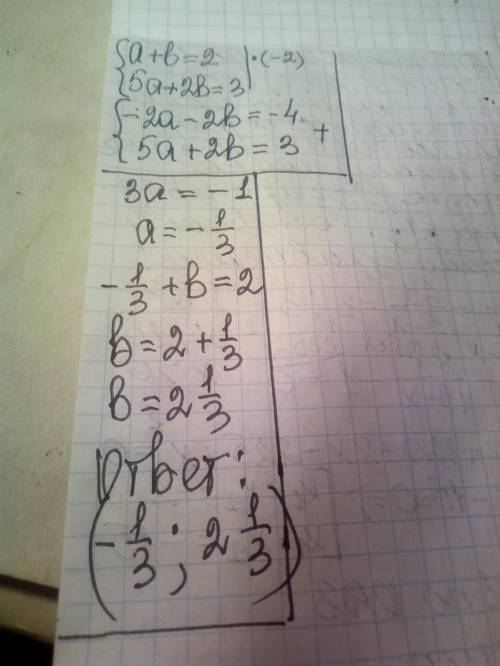 {a+b=2 |·(-2)
{5a+2b=3
{-2a-2b=-4
{5a+2b=3 +
3a=-1
a=-1/3
-1/3+b=2
b=2+1/3
b=2 1/3
Ответ:
(-1/3; 2 1/3)